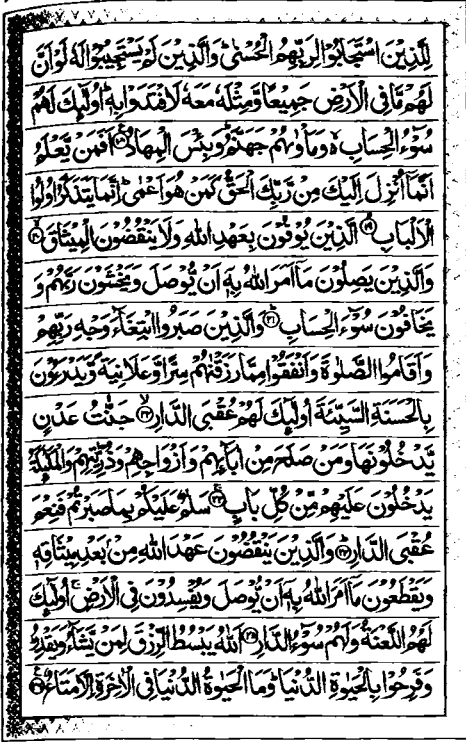 لِلَّذِيْنَ اسْتَجَابُوْا لِرَبِّهِمُ الْحُسْنٰىؕ وَالَّذِيْنَ لَمْ يَسْتَجِيْبُوْا لَهٗ لَوْ اَنَّ
لَهُمْ مَّا فِى الْاَرْضِ جَمِيْعًا وَّمِثْلَهٗ مَعَهٗ لَافْتَدَوْا بِهٖؕ اُولٰٓئِكَ لَهُمْ
سُوْٓءُ الْحِسَابِ ۙ وَمَاْوٰىهُمْ جَهَنَّمُؕ وَبِئْسَ الْمِهَادُ ﴿۱۸﴾ اَفَمَنْ يَّعْلَمُ
اَنَّمَاۤ اُنْزِلَ اِلَيْكَ مِنْ رَّبِّكَ الْحَقُّ كَمَنْ هُوَ اَعْمٰىؕ اِنَّمَا يَتَذَكَّرُ اُولُوا
الْاَلْبَابِ ﴿۱۹﴾ الَّذِيْنَ يُوْفُوْنَ بِعَهْدِ اللّٰهِ وَلَا يَنْقُضُوْنَ الْمِيْثَاقَ ﴿۲۰﴾
وَالَّذِيْنَ يَصِلُوْنَ مَاۤ اَمَرَ اللّٰهُ بِهٖۤ اَنْ يُّوْصَلَ وَيَخْشَوْنَ رَبَّهُمْ وَ
يَخَافُوْنَ سُوْٓءَ الْحِسَابِ ﴿۲۱﴾ وَالَّذِيْنَ صَبَرُوا ابْتِغَآءَ وَجْهِ رَبِّهِمْ
وَاَقَامُوا الصَّلٰوةَ وَاَنْفَقُوْا مِمَّا رَزَقْنٰهُمْ سِرًّا وَّعَلَانِيَةً وَّيَدْرَءُوْنَ
بِالْحَسَنَةِ السَّيِّئَةَ اُولٰٓئِكَ لَهُمْ عُقْبَى الدَّارِ ﴿۲۲﴾ جَنّٰتُ عَدْنٍ
يَّدْخُلُوْنَهَا وَمَنْ صَلَحَ مِنْ اٰبَآئِهِمْ وَاَزْوَاجِهِمْ وَذُرِّيّٰتِهِمْ وَالْمَلٰٓئِكَةُ
يَدْخُلُوْنَ عَلَيْهِمْ مِّنْ كُلِّ بَابٍ ﴿۲۳﴾ سَلٰمٌ عَلَيْكُمْ بِمَا صَبَرْتُمْ فَنِعْمَ
عُقْبَى الدَّارِ ﴿۲۴﴾ وَالَّذِيْنَ يَنْقُضُوْنَ عَهْدَ اللّٰهِ مِنْۢ بَعْدِ مِيْثَاقِهٖ
وَيَقْطَعُوْنَ مَاۤ اَمَرَ اللّٰهُ بِهٖۤ اَنْ يُّوْصَلَ وَيُفْسِدُوْنَ فِى الْاَرْضِ ۙ اُولٰٓئِكَ
لَهُمُ اللَّعْنَةُ وَلَهُمْ سُوْٓءُ الدَّارِ ﴿۲۵﴾ اَللّٰهُ يَبْسُطُ الرِّزْقَ لِمَنْ يَّشَآءُ وَيَقْدِرُ
وَفَرِحُوْا بِالْحَيٰوةِ الدُّنْيَاؕ وَمَا الْحَيٰوةُ الدُّنْيَا فِى الْاٰخِرَةِ اِلَّا مَتَاعٌ ﴿۲۶﴾